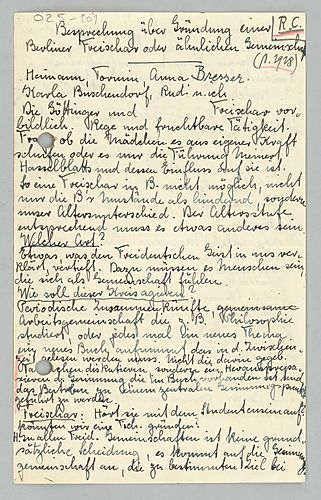 025-101
Besprechung über Gründung einer R.C.
Berliner Freischar oder ähnlichen Gemeinschaft
(1.1928)
Heimann, Tormin Anna Bresser.
Karla Buschendorf, Rud: u. ich
Die Göttinger und Freischar vor-
bildlich. Rege und fruchtbare Tätigkeit.
ob die Mädchen es aus eigener Kraft
schufen oder es nur die Führung Meinert
Hasselblatts und dessen Einfluss auf sie ist.
So eine Freischar in B. nicht möglich, nicht
nur die B'r Umstände als hindernd, sondern
unser Altersunterschied. Der Altersstufe
entsprechend muss es etwas anderes sein.
Welcher Art?
Etwas, was den Freideutschen Geist in uns ver-
klärt, vertieft. Dazu müssen es Menschen sein
die sich als Gemeinschaft fühlen.
Wie soll dieser Kreis agieren?
Periodische Zusammenkünfte, gemeinsame
Arbeitsgemeinschaft die z.B. Philosophie
studiert, oder jedes mal ein neues Thema,
ein neues Buch aufnimmt das in d. Zwischen-
zeit gelesen werden muss. Nicht die darin gegeb.
diskutieren, sondern ein Herauspressen
deren Gesinnung die im Buch vorhanden ist und
das Bestreben, zu einem zentralen Gesinnungspunkt
geführt zu werden.
Freischar: Hört sie mit dem Studentensein auf?
Könnten wir eine Freisch. gründen?
In allen Freid. Gemeinschaften ist keine grund-
sätzliche Scheidung, es kommt auf die Gesinnungs-
gemeinschaft an, die zu bestimmten Ziel bei